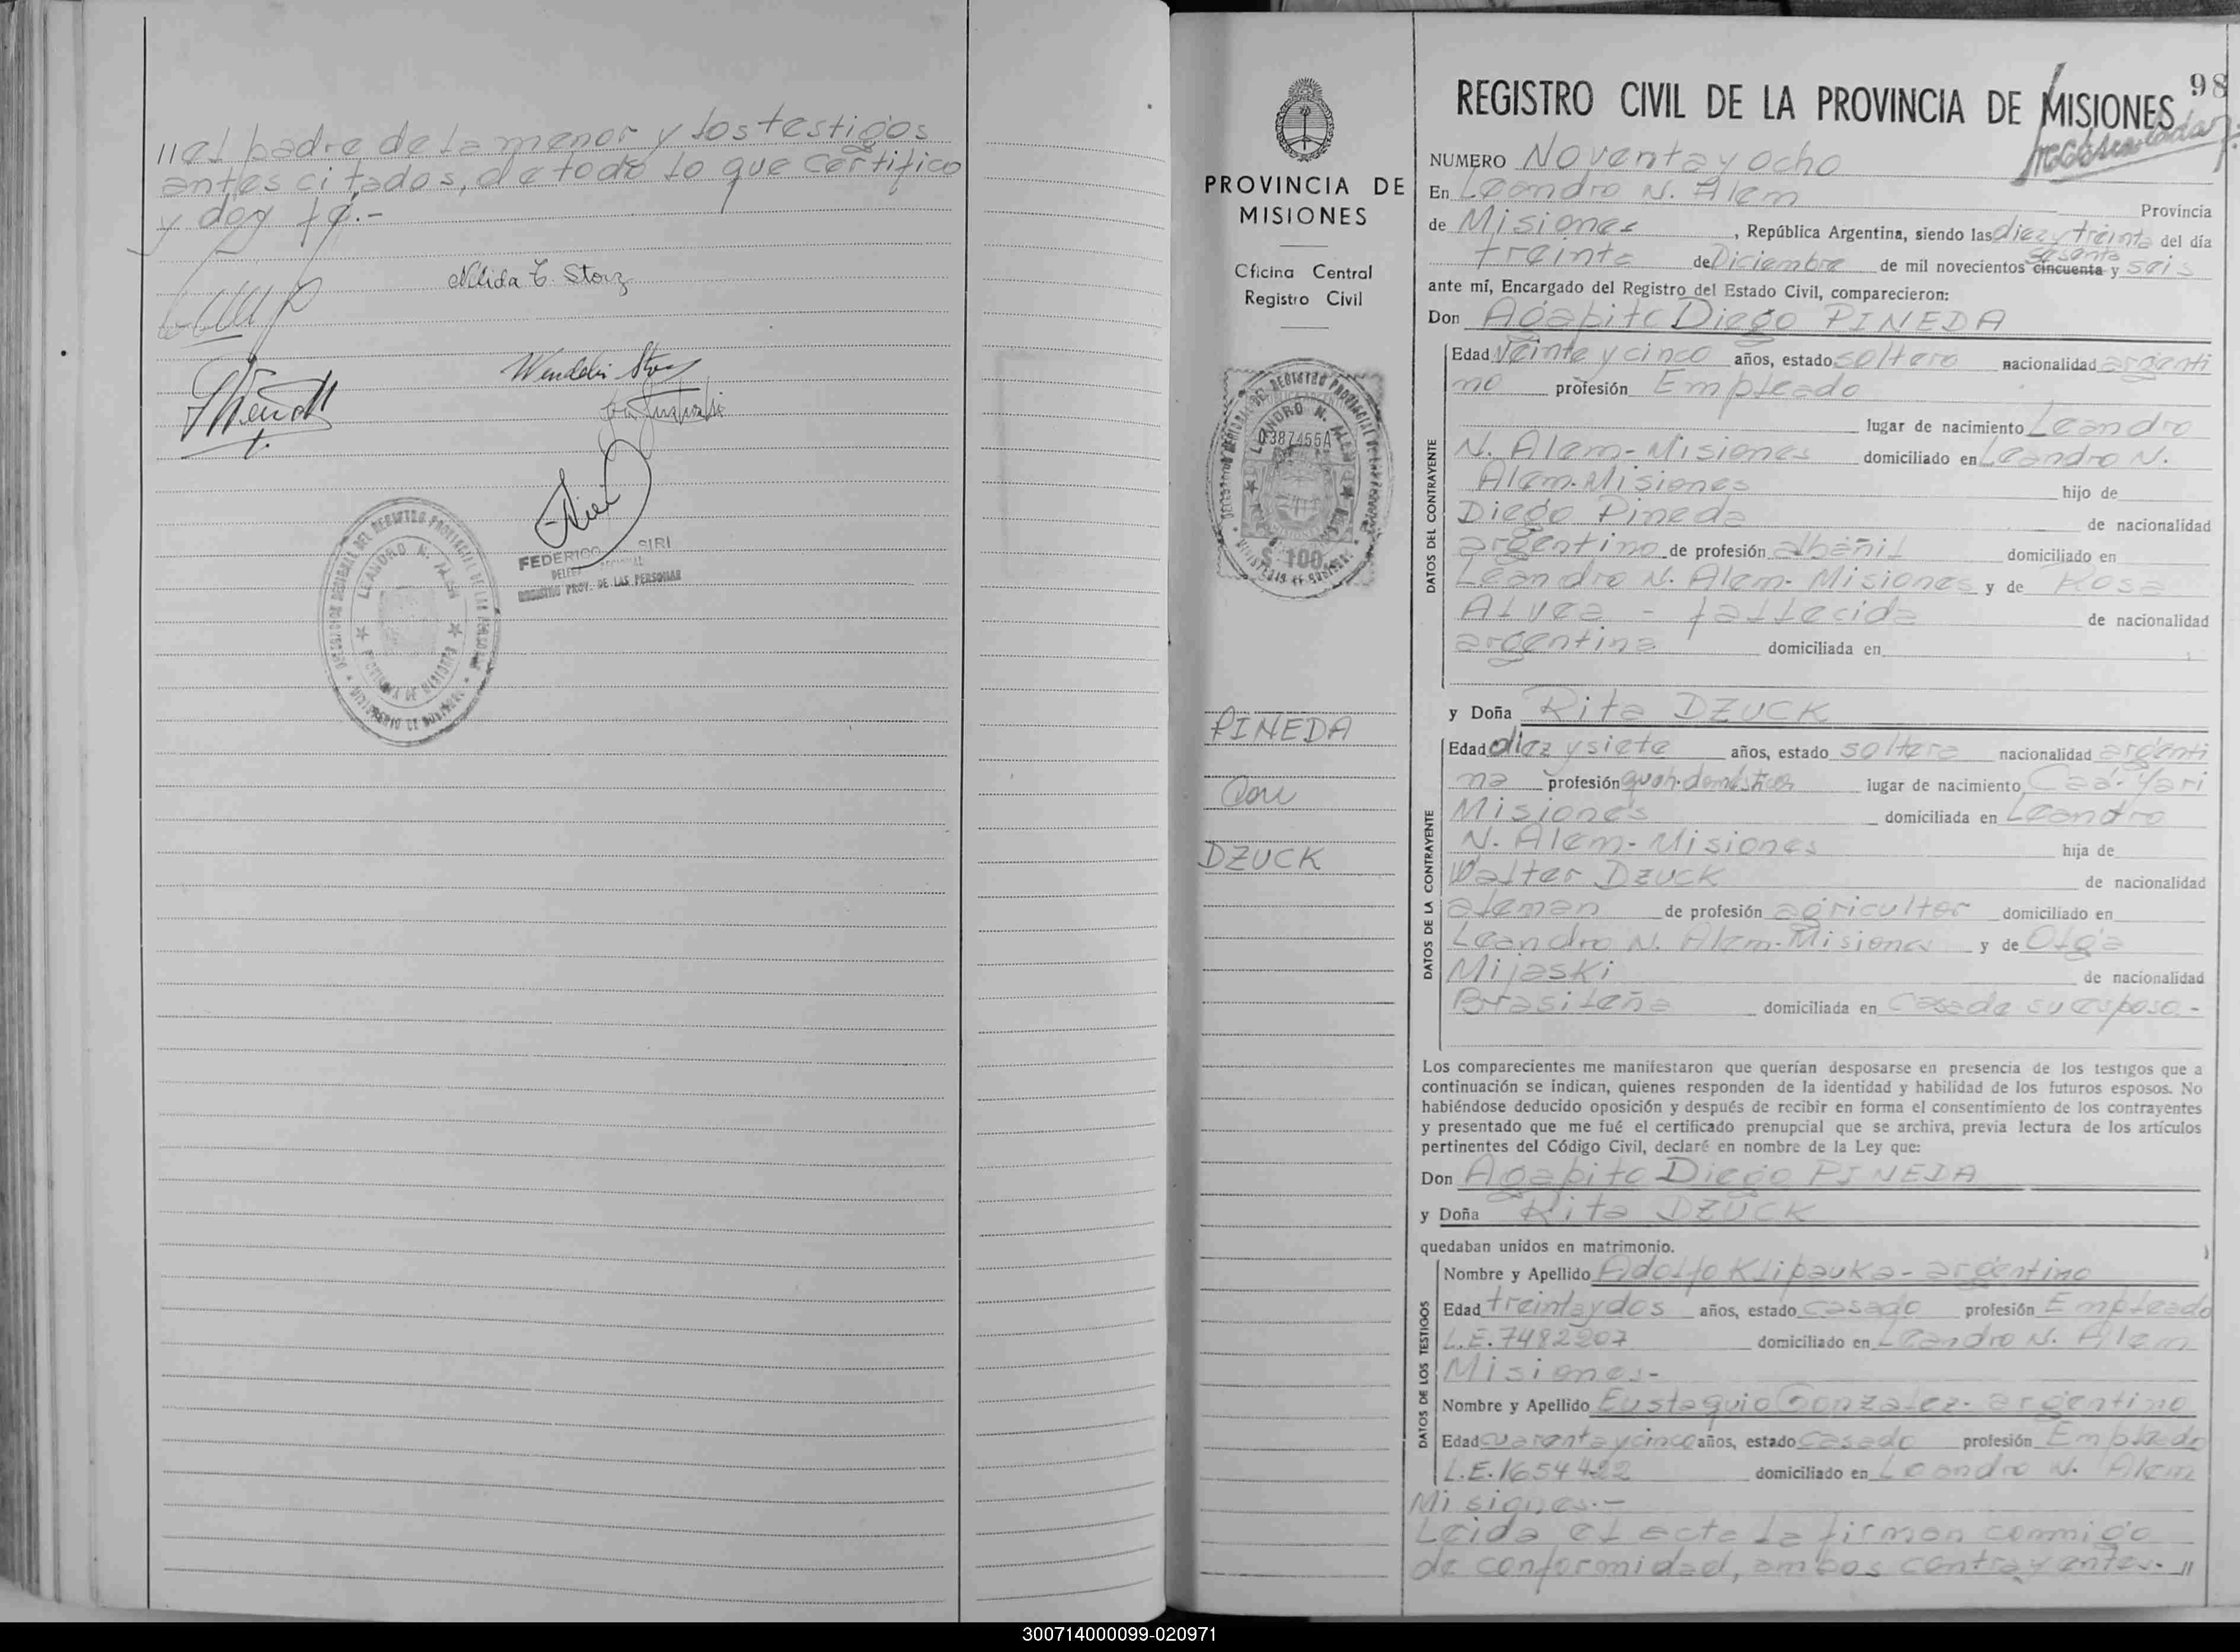 //el padre de la menor y los testigos
antes citados, de todo lo que certifico
y doy fé.-
Nélida E. Storz
Wendelin Storz
FEDERICO SIRI
REGISTRO PROV. DE LAS PERSONAS
LEANDRO N. ALEM
PROVINCIA DE
MISIONES
Oficina Central
Registro Civil
LEANDRO N. ALEM
0387455A
$ 100
PINEDA
Con
DZUCK
98
REGISTRO CIVIL DE LA PROVINCIA DE MISIONES
NUMERO Noventa y ocho
En Leandro N. Alem
Provincia
de Misiones, República Argentina, siendo las diez y treinta del día
treinta de Diciembre de mil novecientos cincuenta sesenta y seis
ante mí, Encargado del Registro del Estado Civil, comparecieron:
Don Agapito Diego PINEDA
Edad Veinte y cinco años, estado soltero nacionalidad argenti
no profesión Empleado
lugar de nacimiento Leandro
N. Alem-Misiones domiciliado en Leandro N.
Alem-Misiones hijo de
Diego Pineda de nacionalidad
argentino de profesión albañil domiciliado en
Leandro N. Alem-Misiones y de Rosa
Alvea - fallecida de nacionalidad
argentina domiciliada en
DATOS DEL CONTRAYENTE
y Doña Rita DZUCK
Edad diez y siete años, estado soltera nacionalidad argenti
na profesión queh. domésticos lugar de nacimiento Caá-Yari
Misiones domiciliada en Leandro
N. Alem-Misiones hija de
Walter Dzuck de nacionalidad
aleman de profesión agricultor domiciliado en
Leandro N. Alem-Misiones y de Olga
Mijaski de nacionalidad
Brasileña domiciliada en Casa de su esposo.-
DATOS DE LA CONTRAYENTE
Los comparecientes me manifestaron que querían desposarse en presencia de los testigos que a
continuación se indican, quienes responden de la identidad y habilidad de los futuros esposos. No
habiéndose deducido oposición y después de recibir en forma el consentimiento de los contrayentes
y presentado que me fué el certificado prenupcial que se archiva, previa lectura de los artículos
pertinentes del Código Civil, declaré en nombre de la Ley que:
Don Agapito Diego PINEDA
y Doña Rita DZUCK
quedaban unidos en matrimonio.
Nombre y Apellido Adolfo Klipauka - argentino
Edad treinta y dos años, estado casado profesión Empleado
L.E. 7482207 domiciliado en Leandro N. Alem
Misiones-
Nombre y Apellido Eustaquio Gonzalez - argentino
Edad cuarenta y cinco años, estado casado profesión Empleado
L.E. 1654422 domiciliado en Leandro N. Alem
Misiones.-
DATOS DE LOS TESTIGOS
Leida el acta la firman conmigo
de conformidad, ambos contrayentes. //
300714000099-020971